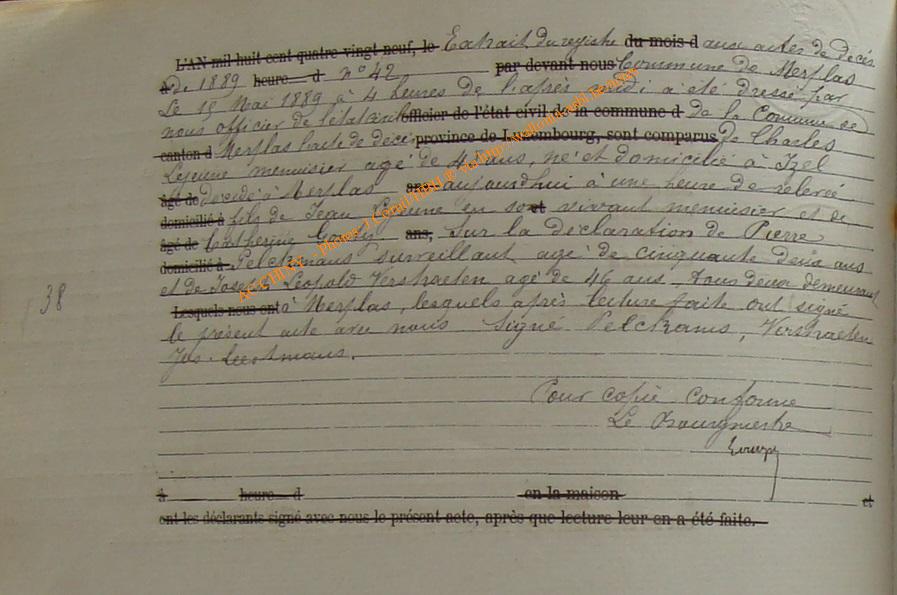 L'AN mil huit cent quatre vingt neuf, le Extrait du registre du mois d aux actes de décès
à de 1889 heure d n° 42 par devant nous Commune de Merplas
Le 15 Mai 1889 à 4 heures de l'après midi a été dressé par
nous officier de l'état civil officier de l'état civil de la commune d de la Commune de
canton d Merplas l'acte de décès province de Luxembourg, sont comparus de Charles
Lejeune menuisier agé de ans, né et domicilié à Izel
âgé de décédé à Merplas ans aujourdhui à une heure de relevée
domicilié à fils de Jean Lejeune en son et vivant menuisier et de
âgé de Catherine ans, Sur la déclaration de Pierre
domicilié à Pelckmans surveillant agé de cinquante deux ans
et de Joseph Léopold Verstraeten agé de 46 ans, tous deux demeurant
38
Lesquels nous ont à Merplas, lesquels après lecture faite ont signé
le présent acte avec nous Signé Pelckmans, Verstraeten
Jos.
Pour copie conforme
Le Bourgmestre
à heure d en la maison et
ont les déclarants signé avec nous le présent acte, après que lecture leur en a été faite.